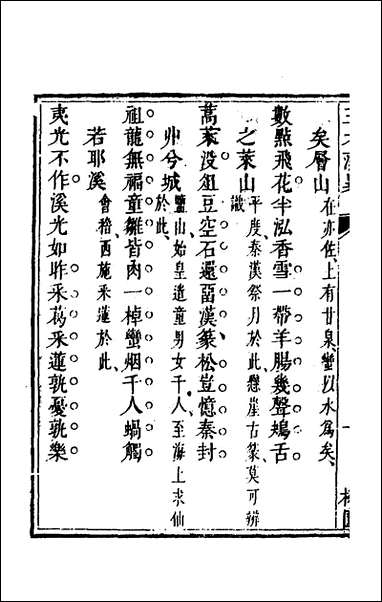 矣層山在亦佐上有甘泉蠻以水為矣
數點飛花半泓香雪一帶羊腸幾聲鴂舌
之萊山平度秦漢祭月於此懸崖古篆莫可辨識
蒿萊没俎豆空石還畱漢篆松豈憶秦封
丱兮城鹽山始皇遣童男女千人至海上求仙於此
祖龍無福童雛皆肉一棹蠻烟千人蝸觸
若耶溪會稽西施釆蓮於此
夷光不作溪光如昨釆葛釆蓮孰憂孰樂